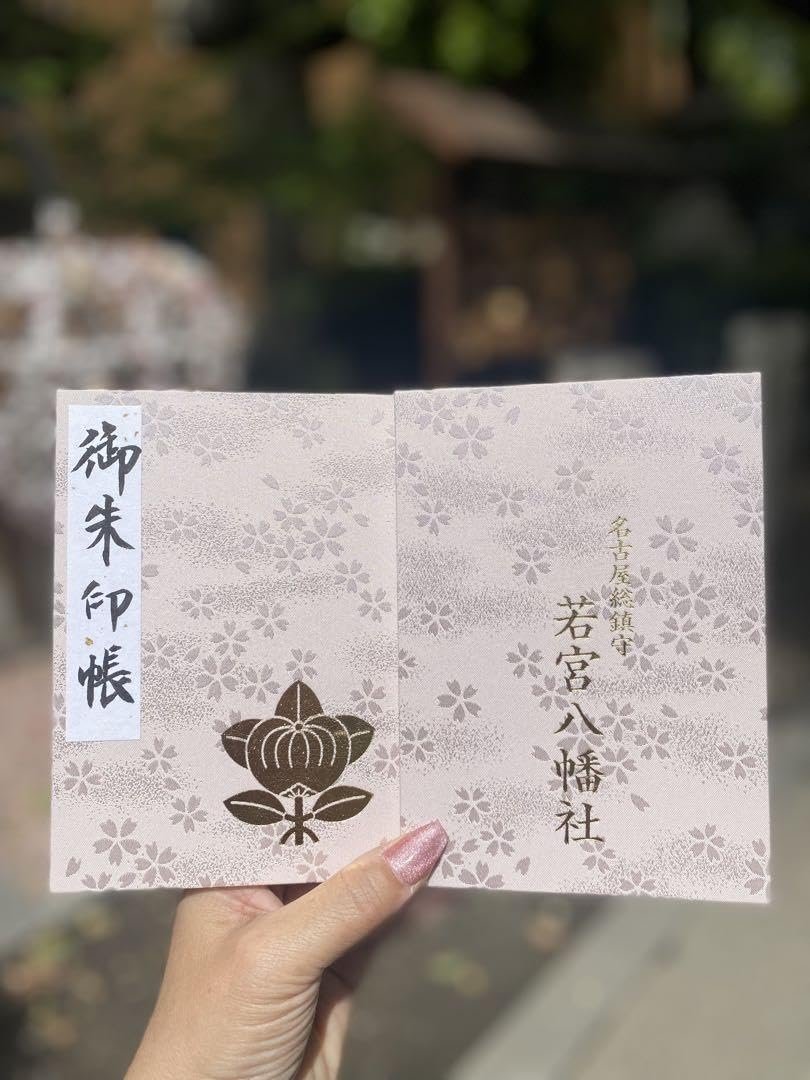 御朱印帳
名古屋総鎮守
若宮八幡社